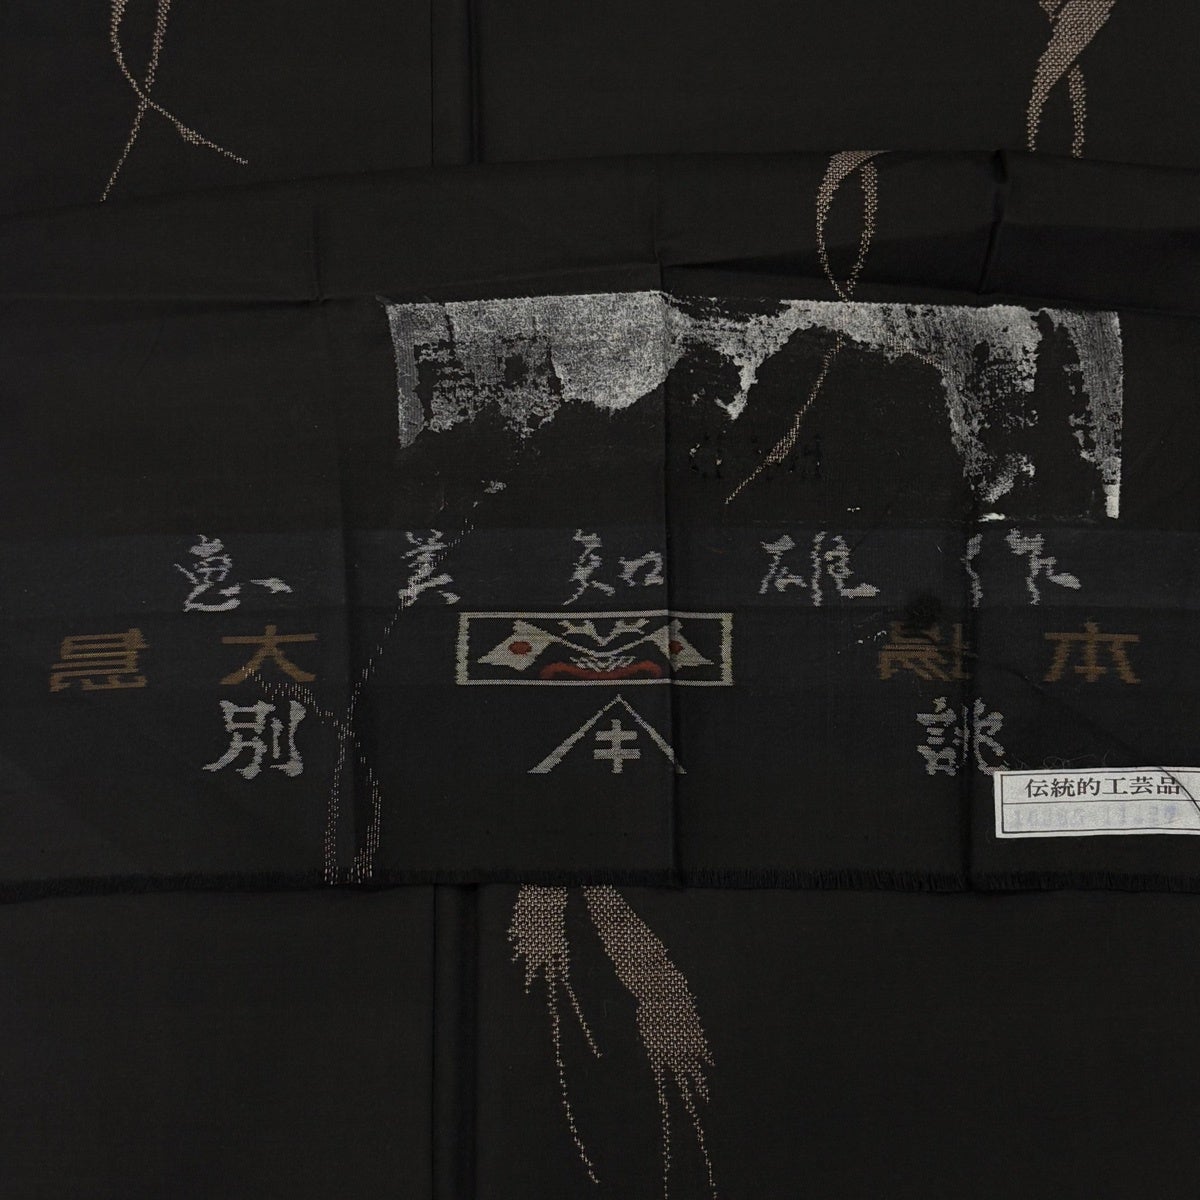 恵美知雄作
本場大島
別誂
伝統的工芸品